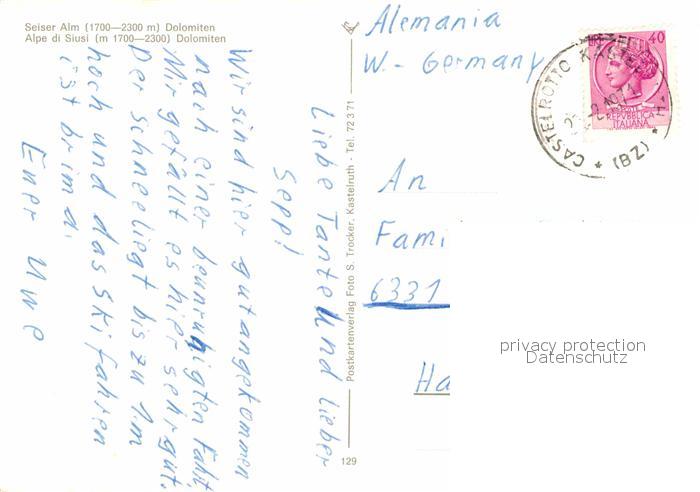 Seiser Alm (1700—2300 m) Dolomiten
Alpe di Siusi (m 1700—2300) Dolomiten
Liebe Tante Und Lieber
Sepp!
Wir sind hier gutangekommen
nach einer beunruhigten Fahrt,
Mir gefällt es hier sehr gut.
Der Schnee liegt bis zu 1.m
hoch und das Skifahren
ist brima.
Euer Uwe
Postkartenverlag Foto S. Trocker, Kastelruth - Tel. 72371
129
Alemania
W.- Germany
40
REPVBBLICA
ITALIANA
CASTELROTTO
* (BZ) *
An
Fami
6331
Ha
privacy protection
Datenschutz